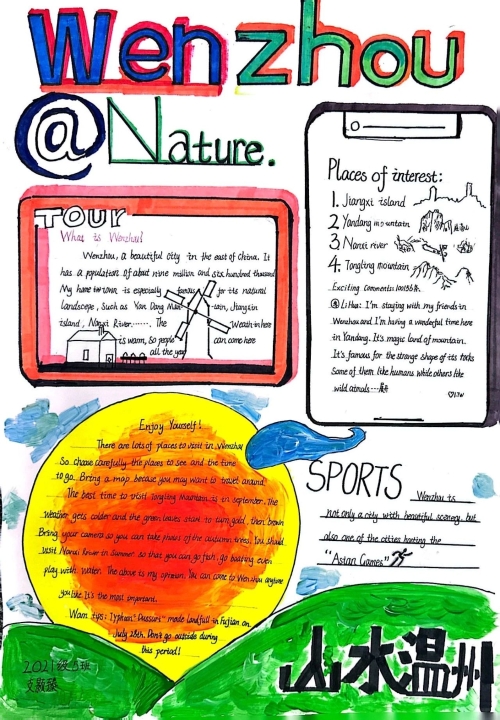 Wenzhou
@Nature.
TOUR
What is Wenzhou?
Wenzhou, a beautiful city in the east of China. It
has a population of about nine million and six hundred thousand
My home town is especially famous for its natural
landscape, such as Yan Dang Moun-tain, Jiangxin
island, Nanxi River....... The Weath in here
is warm, So people can come here
all the year
Places of interest:
1. Jiangxi island
2 Yandang mountain
3 Nanxi river
4. Tongling mountain
Exciting Comments:
LiHua: I'm staying with my friends in
Wenzhou and I'm having a wonderful time here
in Yandang. It's magic land of mountain.
It's famous for the strange shape of its rocks
Some of them like humans while others like
wild
Enjoy Yourself!
There are lots of places to visit in Wenzhou
So choose carefully the places to see and the time
to go. Bring a map becaue you may want to travel around
The best time to visit Tongling Mountain is in september. The
weather gets colder and the green leaves start to turn gold, then brown
Bring your camera so you can take photos of the autumn trees. You should
visit Nanxi River in Summer. so that you can go fish, go boating even
play with water. The above is my opinion. You can come to Wen zhou anytime
you like. It's the most important.
Wam tips: Typhun" Dussuri" made landfall in Fujian on
July 28th. Don't go outside during
this period!
SPORTS
Wenzhou is
not only a city with beautiful scenery, but
also one of the cities hosting the
"Asian Games"
山水温州
2021级